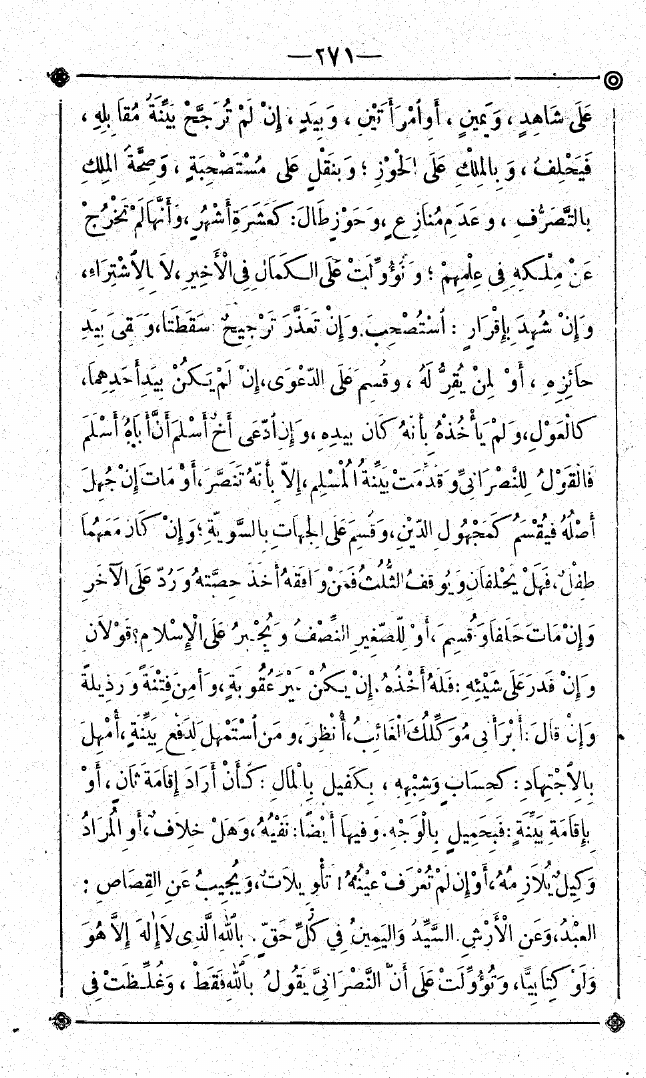 —٢٧١—
عَلَى شَاهِدٍ ، وَيَمِينٍ ، أَوِ ٱمْرَأَتَيْنِ ، وَبِيَدٍ ، إِنْ لَمْ تُرَجَّحْ بَيِّنَةُ مُقَابِلِهِ ،
فَيَحْلِفُ ، وَبِالمِلْكِ عَلَى الحَوْزِ ؛ وَبِنَقْلٍ عَلَى مُسْتَصْحِبَةٍ ، وَصِحَّةُ المِلْكِ
بِالتَّصَرُّفِ ، وَعَدَمِ مُنَازِعٍ ، وَحَوْزٍ طَالَ: كَعَشَرَةِ أَشْهُرٍ ، وَأَنَّهَا لَمْ تَخْرُجْ
عَنْ مِلْكِهِ فِى عِلْمِهِمْ ؛ وَتُؤُوِّلَتْ عَلَى الكَمَالِ فِى الأَخِيرِ ، لاَ بِالِٱشْتِرَاءِ ،
وَإِنْ شُهِدَ بِإِقْرَارٍ : ٱسْتُصْحِبَ. وَإِنْ تَعَذَّرَ تَرْجِيحٌ سَقَطَتَا ، وَبَقِىَ بِيَدِ
حَائِزِهِ ، أَوْ لِمَنْ يُقِرُّ لَهُ ، وَقُسِمَ عَلَى الدَّعْوَى ، إِنْ لَمْ يَكُنْ بِيَدِ أَحَدِهِمَا ،
كَالْعَوْلِ ، وَلَمْ يَأْخُذْهُ بِأَنَّهُ كَانَ بِيَدِهِ ، وَإِنِ ٱدَّعَى أَخٌ أَسْلَمَ أَنَّ أَبَاهُ أَسْلَمَ
فَالقَوْلُ لِلنَّصْرَانِىِّ وَقُدِّمَتْ بَيِّنَةُ المُسْلِمِ ، إِلاَّ بِأَنَّهُ تَنَصَّرَ ، أَوْ مَاتَ إِنْ جُهِلَ
أَصْلُهُ فَيُقْسَمُ كَمَجْهُولِ الدِّينِ ، وَقُسِمَ عَلَى الجِهَاتِ بِالسَّوِيَّةِ ؛ وَإِنْ كَانَ مَعَهُمَا
طِفْلٌ ، فَهَلْ يَحْلِفَانِ وَيُوقَفُ الثُّلُثُ فَمَنْ وَافَقَهُ أَخَذَ حِصَّتَهُ وَرُدَّ عَلَى الآخَرِ
وَإِنْ مَاتَ حَلَفَا وَقُسِمَ ، أَوْ لِلصَّغِيرِ النِّصْفُ وَيُجْبَرُ عَلَى الْإِسْلاَمِ ؟ قَوْلاَنِ
وَإِنْ قَدَرَ عَلَى شَيْئِهِ : فَلَهُ أَخْذُهُ. إِنْ يَكُنْ غَيْرَ عُقُوبَةٍ ، وَأَمِنَ فِتْنَةً وَرَذِيلَةً
وَإِنْ قَالَ : أَبْرَأَنِى مُوَكِّلُكَ الْغَائِبُ ، أُنْظِرَ ، وَمَنِ ٱسْتَمْهَلَ لِدَفْعِ بَيِّنَةٍ ، أُمْهِلَ
بِالِٱجْتِهَادِ : كَحِسَابٍ وَشِبْهِهِ ، بِكَفِيلٍ بِالْمَالِ : كَأَنْ أَرَادَ إِقَامَةَ ثَانٍ ، أَوْ
بِإِقَامَةِ بَيِّنَةٍ : فَبِحَمِيلٍ بِالْوَجْهِ. وَفِيهَا أَيْضًا : نَفْيُهُ ، وَهَلْ خِلاَفٌ ، أَوِ المُرَادُ
وَكِيلٌ يُلاَزِمُهُ ، أَوْ إِنْ لَمْ تُعْرَفْ عَيْنُهُ ؟ تَأْوِيلاَتٌ ، وَيُجِيبُ عَنِ القِصَاصِ :
العَبْدُ ، وَعَنِ الْأَرْشِ. السَّيِّدُ وَاليَمِينُ فِى كُلِّ حَقٍّ. بِٱللهِ الَّذِى لاَ إِلهَ إِلاَّ هُوَ
وَلَوْ كِتَابِيًّا ، وَتُؤُوِّلَتْ عَلَى أَنَّ النَّصْرَانِىَّ يَقُولُ بِٱللهِ فَقَطْ ، وَغُلِّظَتْ فِى